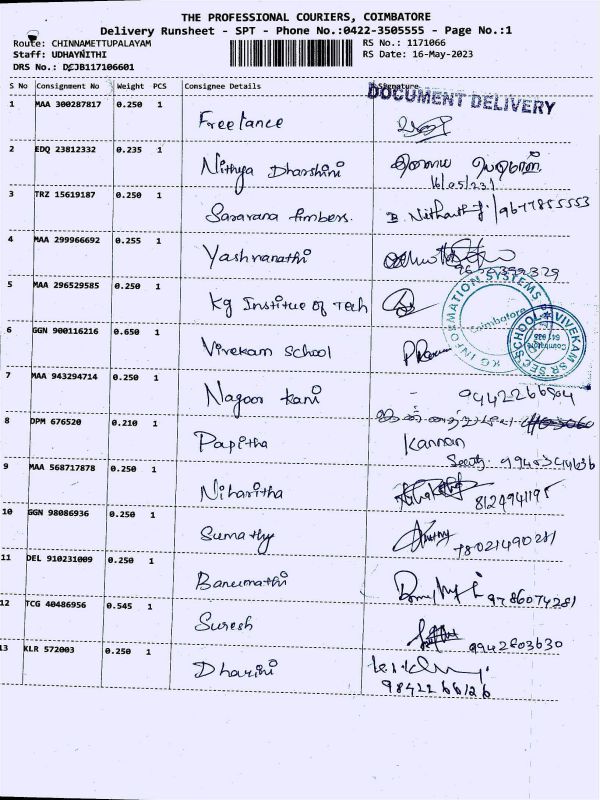 THE PROFESSIONAL COURIERS, COIMBATORE
Delivery Runsheet - SPT - Phone No.:0422-3505555 - Page No.:1
Route: CHINNAMETTUPALAYAM RS No.: 1171066
Staff: UDHAYNITHI RS Date: 16-May-2023
DRS No.: DCJB117106601
S No Consignment No Weight PCS Consignee Details Signature
DOCUMENT DELIVERY
1 MAA 300287817 0.250 1
Freelance
2 EDQ 23812332 0.235 1
Nithya Dharshini
16/05/23
3 TRZ 15619187 0.250 1
Saravana timbers. 9677855553
4 MAA 299966692 0.255 1
Yashvanathi
5 MAA 296529585 0.250 1
Kg Institue of Tech
KG INFORMATION SYSTEMS
Coimbatore
6 GGN 900116216 0.650 1
Vivekam School
VIVEKAM SR SEC SCHOOL
Coimbatore
641 035
7 MAA 943294714 0.250 1
Nagoor kani
8 DPM 676520 0.210 1
Papitha Kannan
9 MAA 568717878 0.250 1
Niharitha 8124941195
10 GGN 98086936 0.250 1
Sumathy
11 DEL 910231009 0.250 1
Banumathi 9786074281
12 TCG 40486956 0.545 1
Suresh 9942803630
13 KLR 572003 0.250 1
Dharini
9842266126